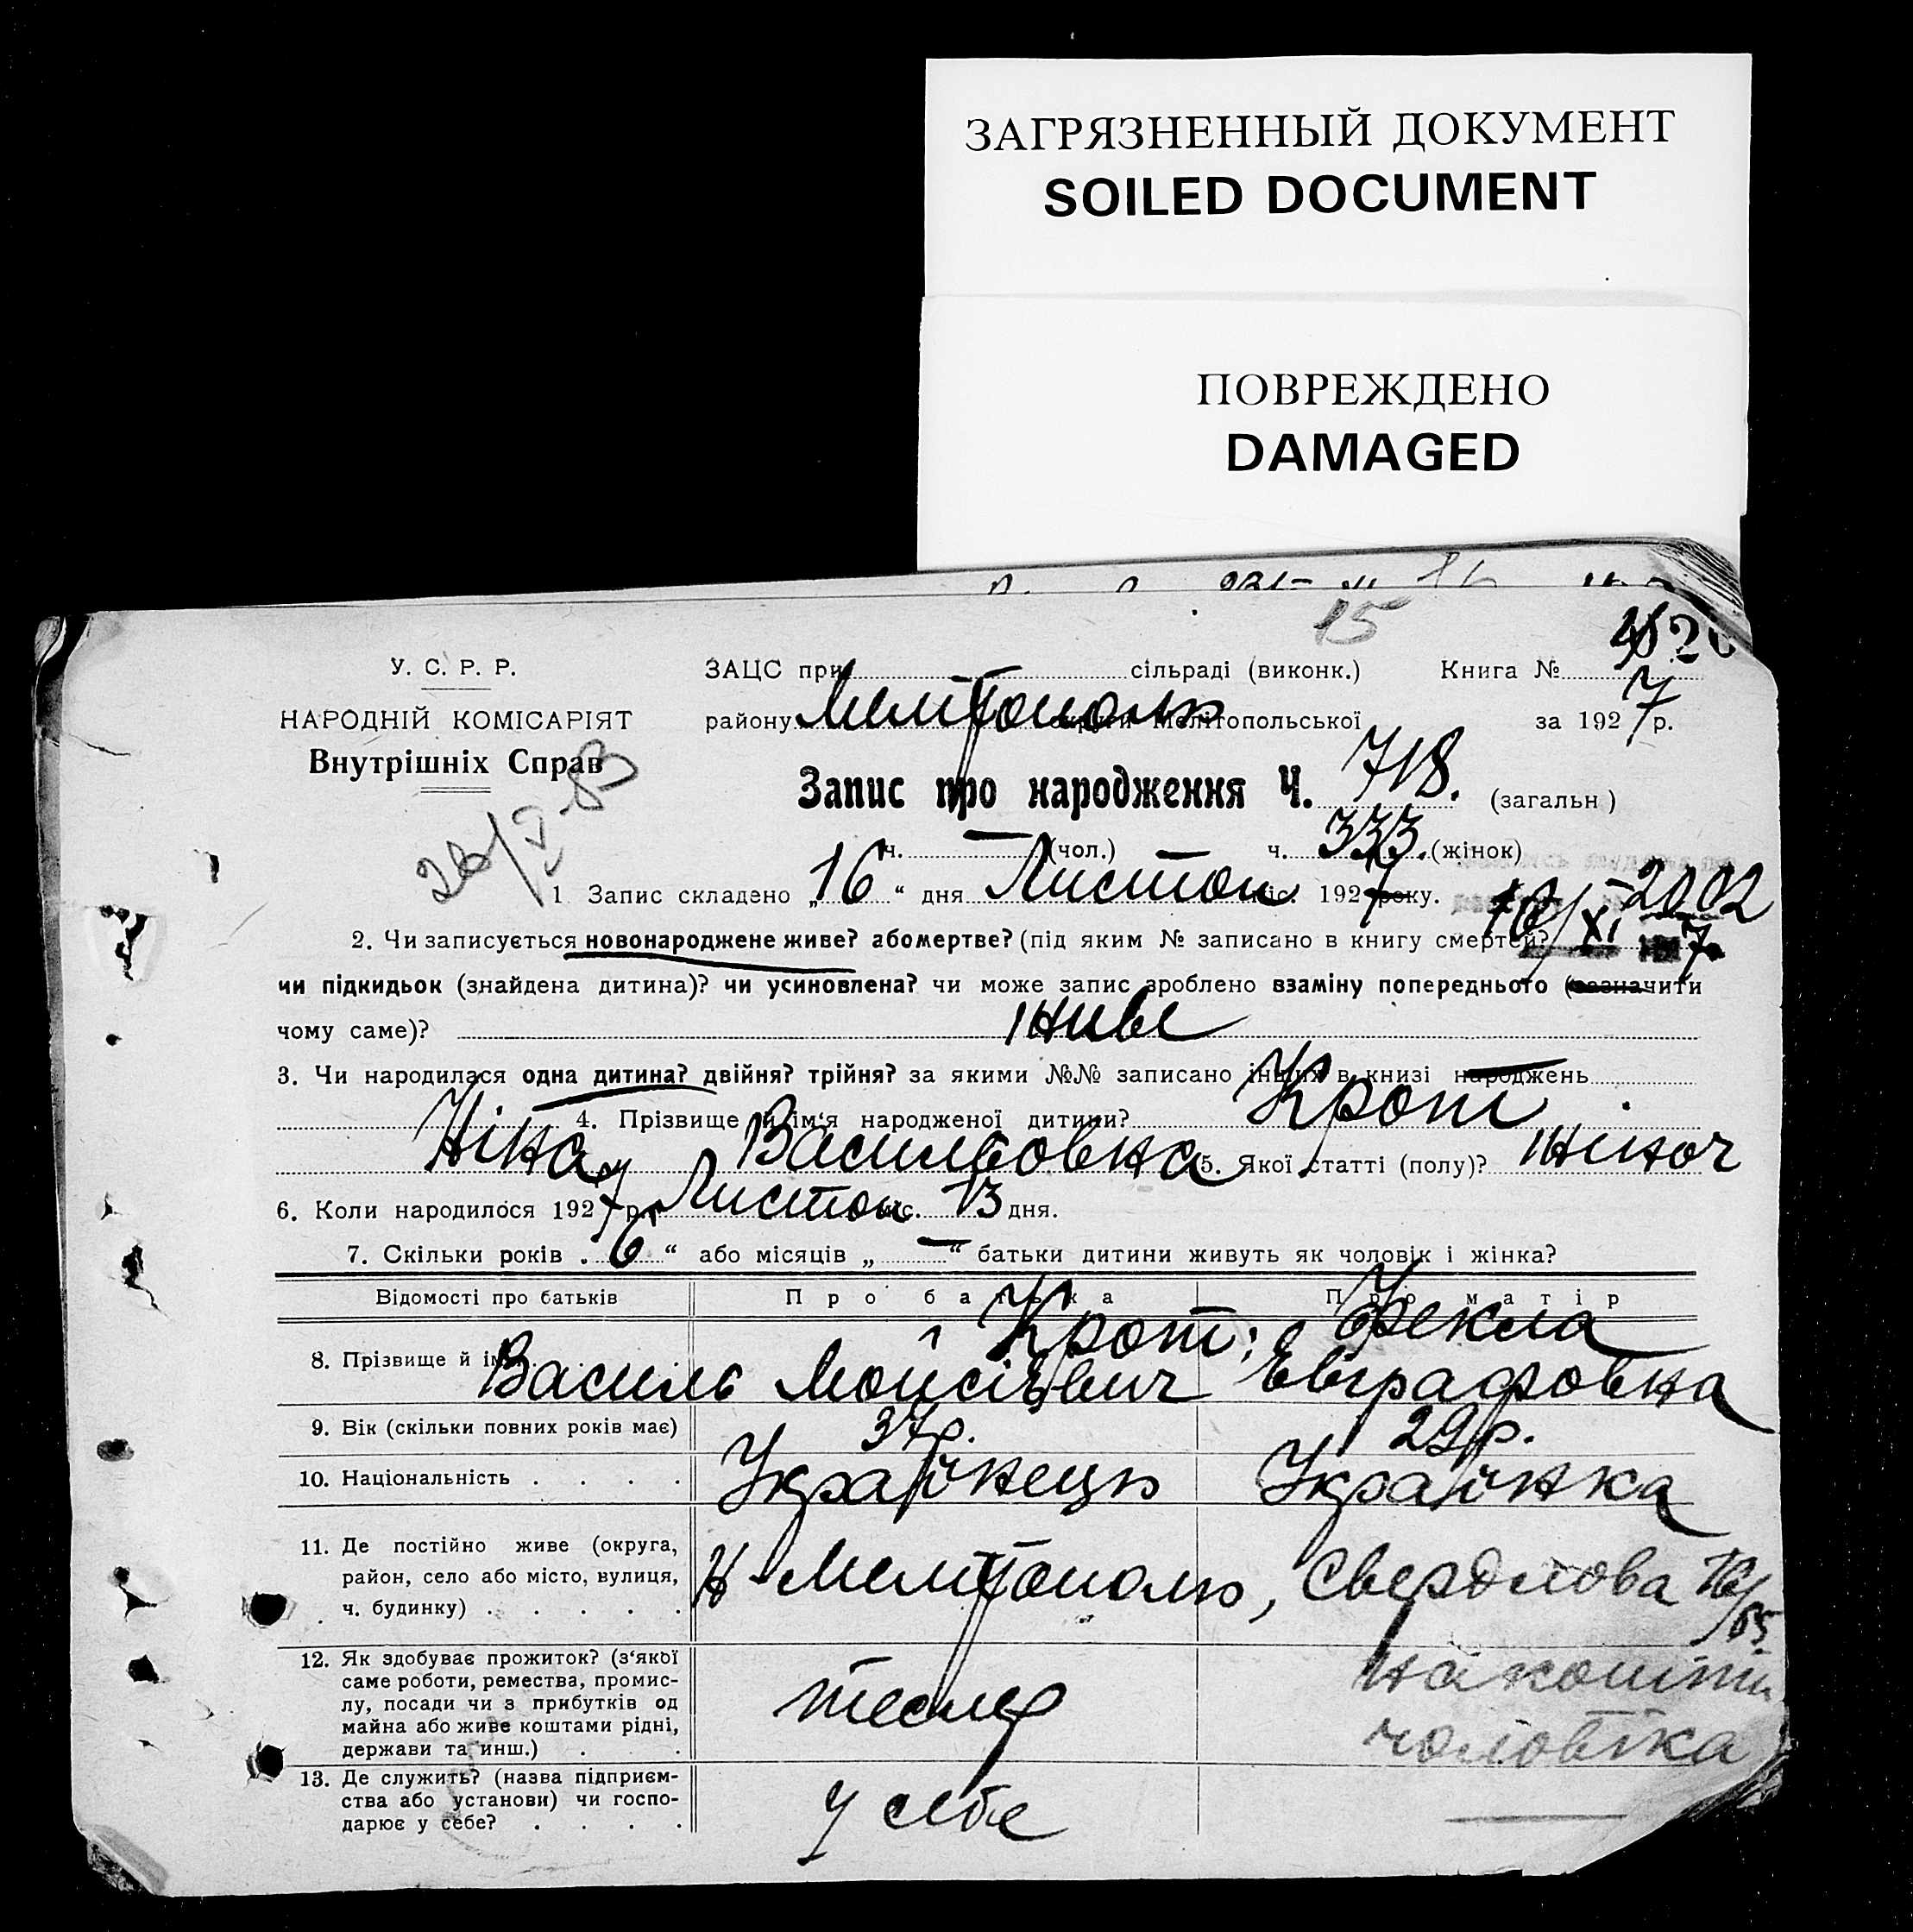 ЗАГРЯЗНЕННЫЙ ДОКУМЕНТ
SOILED DOCUMENT
ПОВРЕЖДЕНО
DAMAGED
15
У. С. Р. Р.
НАРОДНІЙ КОМІСАРІЯТ
Внутрішніх Справ
ЗАЦС при сільраді (виконк.) Книга №
району Мелітополь округи Мелітопольської за 1927 р.
Запис про народження Ч. 718. (загальн)
ч. — (чол.) ч. 333. (жінок)
1 Запис складено „16“ дня Листоп міс. 1927 року.
2002
2. Чи записується новонароджене живе? або мертве? (під яким № записано в книгу смертей?
чи підкидьок (знайдена дитина)? чи усиновлена? чи може запис зроблено взаміну попереднього (зазначити
чому саме)? живе
3. Чи народилася одна дитина? двійня? трійня? за якими №№ записано інших в книзі народжень —
4. Прізвище й ім'я народженої дитини? Крот
Ніна Васильовна 5. Якої статті (полу)? жіноч
6. Коли народилося 1927 р. Листоп міс. 13 дня.
7. Скільки років „6“ або місяців „—“ батьки дитини живуть як чоловік і жінка?
Відомості про батьків Про батька Про матір
8. Прізвище й ім'я Крот; Фекла
Василь Мойсієвич Евграфовна
9. Вік (скільки повних років має) 37 р. 29 р.
10. Національність . . . . Українець Українка
11. Де постійно живе (округа,
район, село або місто, вулиця,
ч. будинку) . . . . . Мелітополь, Свердлова
12. Як здобуває прожиток? (з'якої
саме роботи, ремества, промис-
лу, посади чи з прибутків од
майна або живе коштами рідні,
держави та инш.) . . тесляр на кошти
чоловіка
13. Де служить? (назва підприєм-
ства або установи) чи госпо-
дарює у себе? . . . . у себе —